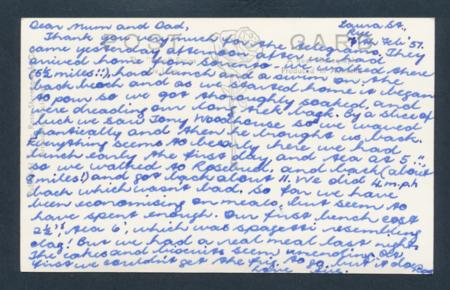 Dear Mum and Dad,
Laura St.,
Rye
Feb. '57.
Thank you very much for the telegrams. They
came yesterday afternoon after we had
arrived home from We walked there
(5½ miles!!), had lunch and a swim on the
back beach and as we started home it began
to pour so we got thoroughly soaked, and
were dreading our long trek back. By a slice of
luck we saw Tony Woodhouse so we waved
frantically and then he brought us back.
Everything seems to be early here we had
lunch early the first day and tea at 5
so we walked to Rosebud and back (about
8 miles!) and got back about 11. We did 4 m.p.h
back which wasn't bad. So far we have
been economising on meals, but seem to
have spent enough. Our first lunch cost
2½' tea 6', which was spagetti resembling
clag! But we had a real meal last night.
The cakes and biscuits seem unending. At
first we couldn't get the to go, but it does
POST CARD